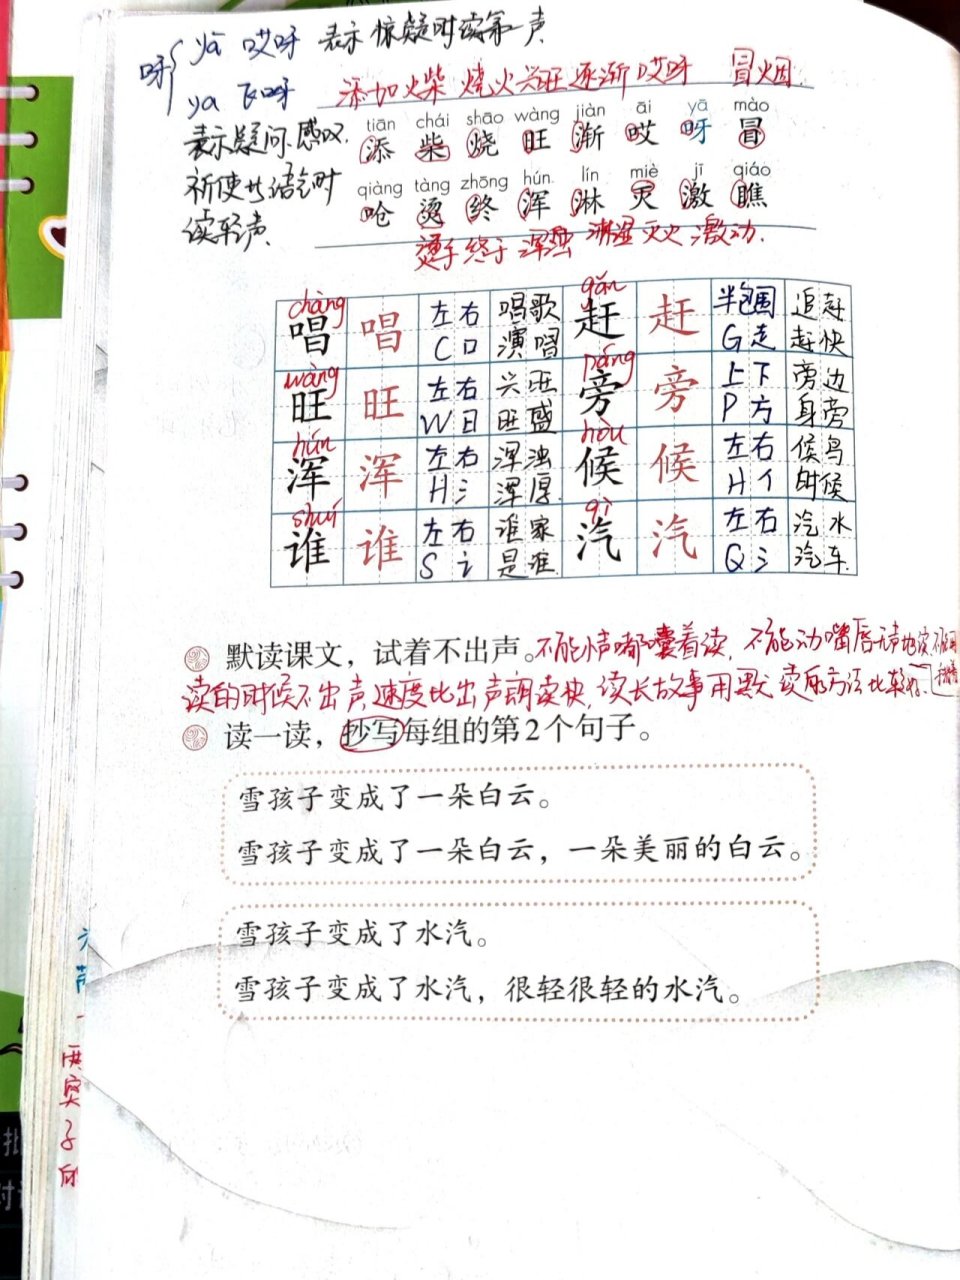 呀 yā 哎呀 表示惊疑时读第一声
ya 飞呀
表示疑问、感叹、
祈使等语气时
读轻声
添加 火柴 烧火 兴旺 逐渐 哎呀 冒烟
tiān chái shāo wàng jiàn āi yā mào
添 柴 烧 旺 渐 哎 呀 冒
qiàng tàng zhōng hún lín miè jī qiáo
呛 烫 终 浑 淋 灭 激 瞧
烫手 终于 浑浊 淋湿 灭火 激动
chàng gǎn
唱 唱 左右 唱歌 赶 赶 半包围 追赶
C 口 演唱 G 走 赶快
wàng páng
旺 旺 左右 兴旺 旁 旁 上下 旁边
W 日 旺盛 P 方 身旁
hún hòu
浑 浑 左右 浑浊 候 候 左右 候鸟
H 氵 浑厚 H 亻 时候
shuí qì
谁 谁 左右 谁家 汽 汽 左右 汽水
S 讠 是谁 Q 氵 汽车
默读课文，试着不出声。不能悄声嘟囔着读，不能动嘴唇无声地读，不能用手指着
读的时候不出声，速度比出声朗读快，读长故事用默读的方法比较好。
读一读，抄写每组的第2个句子。
雪孩子变成了一朵白云。
雪孩子变成了一朵白云，一朵美丽的白云。
雪孩子变成了水汽。
雪孩子变成了水汽，很轻很轻的水汽。